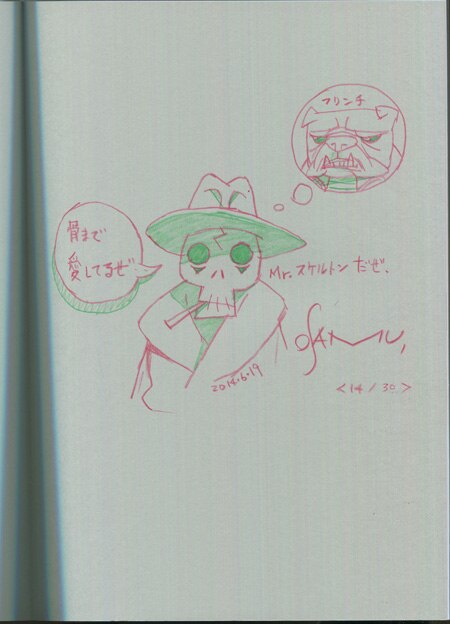 フリンチ
骨まで
愛してるぜ
Mr.スケルトン だぜ.
OSAMU,
2014.6.19
<14/30>